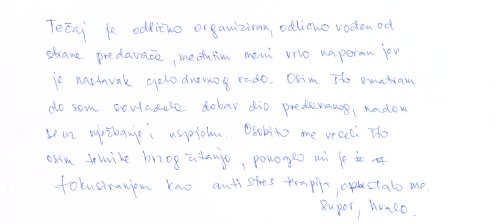 Tečaj je odlično organiziran, odlično vođen od
strane predavača, međutim meni vrlo naporan jer
je nastavak cjelodnevnog rada. Osim što smatram
da sam savladala dobar dio predavanog, nadam
se uz vježbanje i uspjehu. Osobito me veseli što
osim tehnike brzog čitanja, pomoglo mi je
fokusiranjem kao anti stres terapija, opustalo me.
Super, hvala.